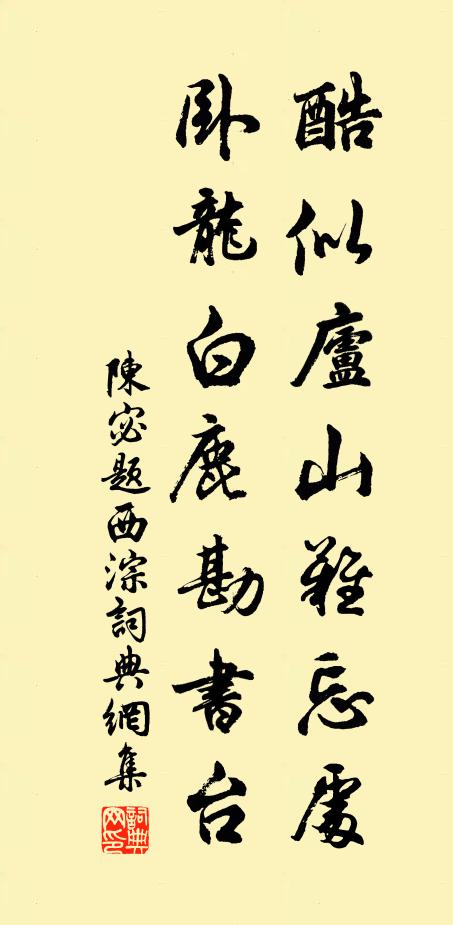 酷似廬山難忘處
卧龍白鹿勘書台
陳宓題西淙詞典網集
詞典網印